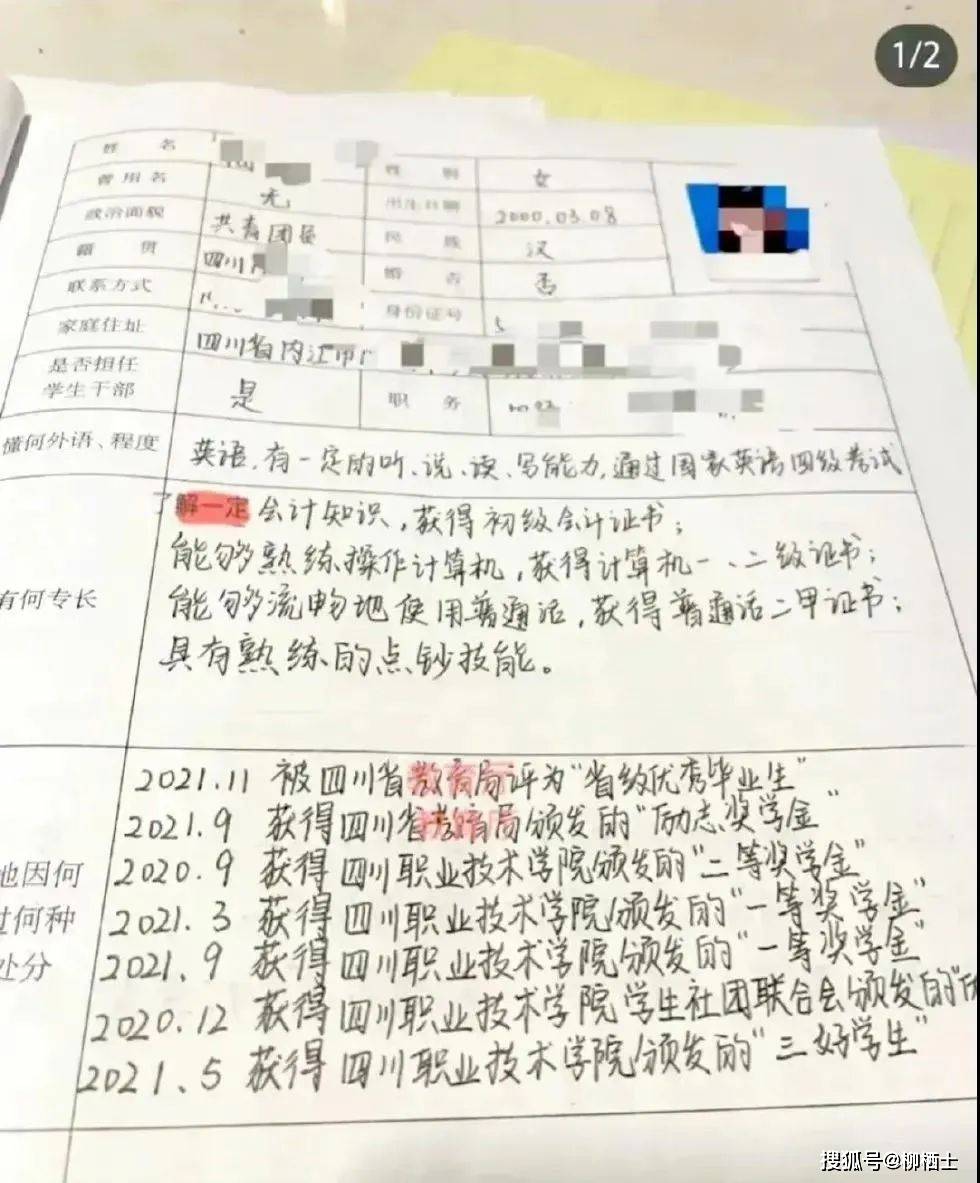 1/2
姓 名 性 别 女
曾用名 无 出生日期 2000.03.08
政治面貌 共青团员 民 族 汉
籍 贯 四川 婚 否 否
联系方式 身份证号
家庭住址 四川省内江市
是否担任
学生干部 是 职 务
懂何外语、程度 英语,有一定的听、说、读、写能力,通过国家英语四级考试
了解一定会计知识,获得初级会计证书;
能够熟练操作计算机,获得计算机一、二级证书;
有何专长 能够流畅地使用普通话,获得普通话二甲证书;
具有熟练的点钞技能。
2021.11 被四川省教育局评为“省级优秀毕业生”
2021.9 获得四川省教育局颁发的“励志奖学金”
地因何 2020.9 获得四川职业技术学院颁发的“二等奖学金”
过何种 2021.3 获得四川职业技术学院颁发的“一等奖学金”
处分 2021.9 获得四川职业技术学院颁发的“一等奖学金”
2020.12 获得四川职业技术学院学生社团联合会颁发的“
2021.5 获得四川职业技术学院颁发的“三好学生”
搜狐号@柳栖士